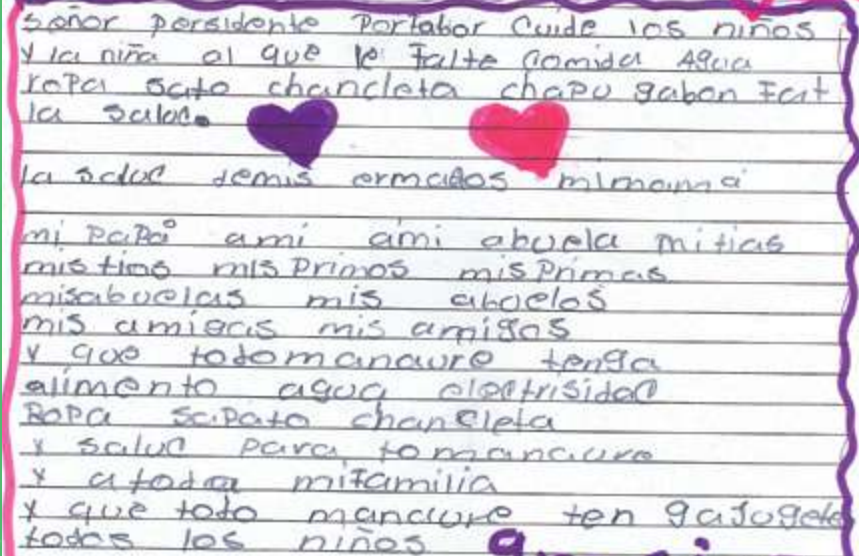 señor persidente Portabor Cuide los niños
y la niña al que le Falte comida Agua
ropa sato chancleta chapu gabon Fat
la salud.
la salud demis ermados mimamá
mi papá ami ami abuela mitias
mis tios mis Primos mis Primas
misabuelas mis abuelos
mis amigas mis amigos
y que todomanaure tenga
alimento agua electrisidad
Ropa sapato chancleta
y salud para tomanaure
y a toda mifamilia
y que todo manaure ten gaJugete
todos los niños